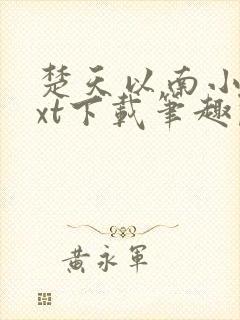 楚天以南小
xt下載筆趣
黃永軍